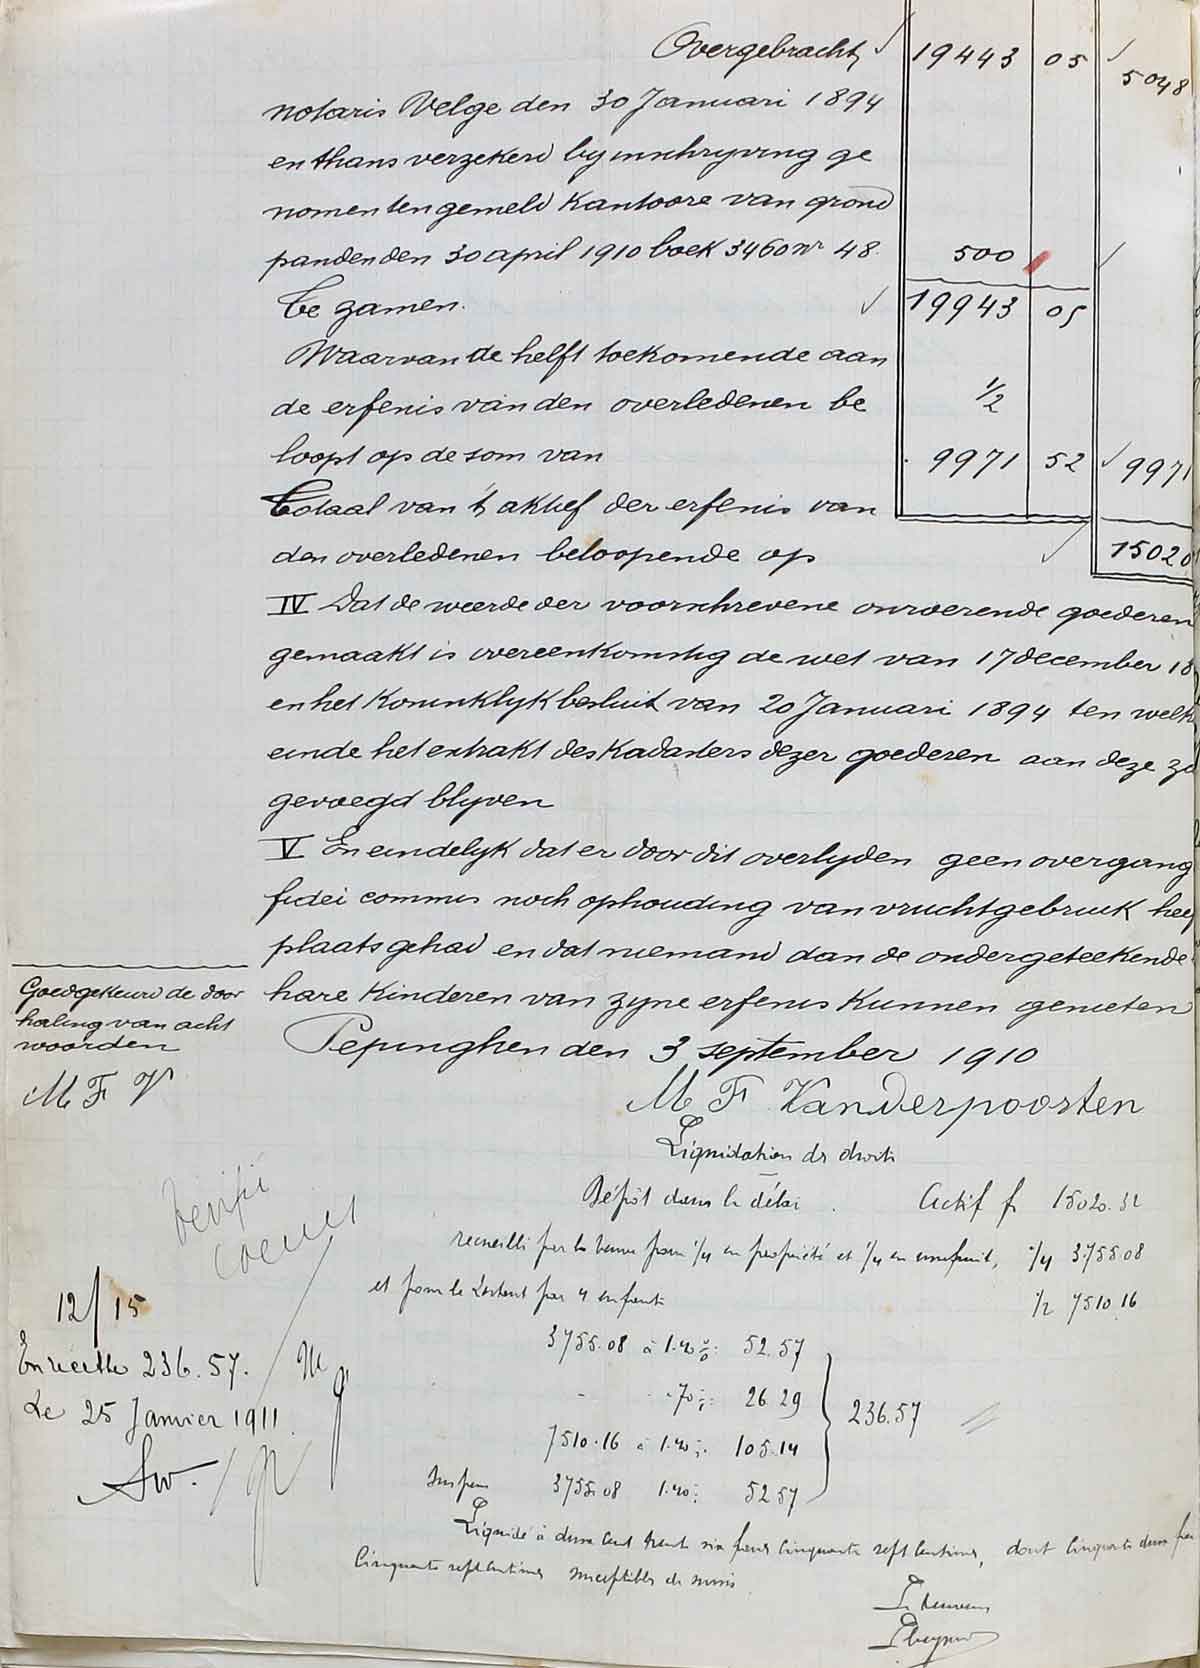 Overgebracht 19443 05 5048
notaris Velge den 30 Januari 1894
en thans verzekerd by inschryving ge
nomen ten gemeld kantoore van grond
panden den 30 april 1910 boek 3460 nr 48. 500
Te zamen. 19943 05
Waarvan de helft toekomende aan
de erfenis van den overledenen be 1/2
loopt op de som van 9971 52 9971
Totaal van 't aktief der erfenis van
den overledenen beloopende op 15020
IV Dat de weerde der voorschrevene onroerende goederen
gemaakt is overeenkomstig de wet van 17 december 18
en het Koninklyk besluit van 20 Januari 1894 ten welk
einde het extrakt des Kadasters dezer goederen aan deze
gevoegd blyven
V En eindelyk dat er door dit overlyden geen overgang
fidei commis noch ophouding van vruchtgebruik
plaats gehad en dat niemand dan de ondergeteekende
hare kinderen van zyne erfenis kunnen genieten
Pepinghen den 3 september 1910
Goedgekeurd de door
haling van acht
woorden
M F V
M F Vanderpoorten
Liquidation des droits
Dépôt dans le délai. Actif f. 15020.32
recueilli par la veuve pour 1/4 en propriété et 1/4 en usufruit, 1/4 3755.08
et pour le restant par 4 enfants 1/2 7510.16
3755.08 à 1.40 % 52.57
- .70 % 26.29
7510.16 à 1.40 % 105.14
236.57
Suspens 3755.08 1.40 % 52.57
Liquidé à deux cent trente six francs cinquante sept centimes, dont cinquante deux
cinquante sept centimes susceptibles de sursis
Le Receveur
Vérifié
12/15
En recette 236.57.
Le 25 Janvier 1911